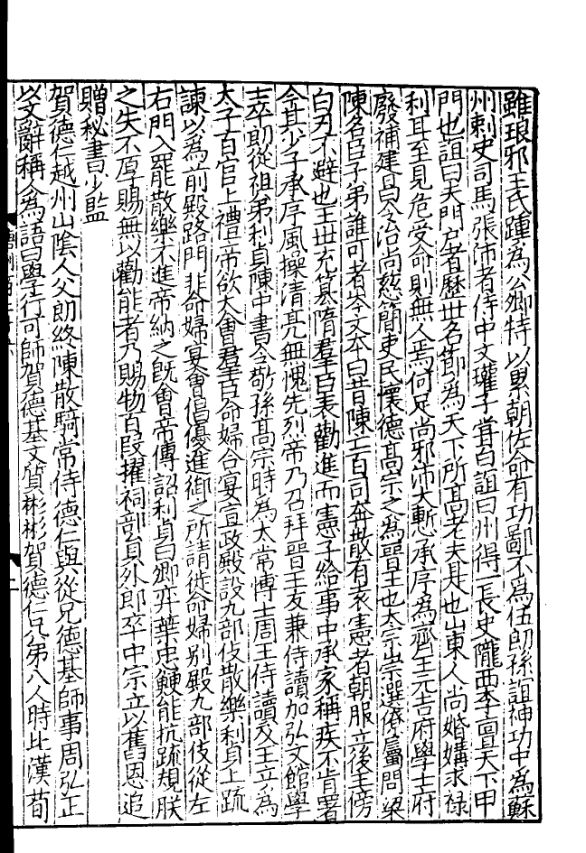 雖琅邪王氏踵為公卿特以累朝佐命有功鄙不為伍朗孫誼神功中為蘇
州刺史司馬張沛者侍中文瓘子嘗白誼曰州得一長史隴西李亶天下甲
門也誼曰夫門戶者歷世名節為天下所高老夫是也山東人尚婚媾求祿
利耳至見危受命則無人焉何足尚邪沛大慙承序為齊王元吉府學士府
廢補建昌令治尚慈簡吏民懷德高宗之為晉王也太宗崇選僚屬問梁
陳名臣子弟誰可者岑文本曰昔陳亡百司奔散有袁憲者朝服立後主傍
白刃不避也王世充篡隋羣臣表勸進而憲子給事中承家稱疾不肯署
今其少子承序風操清亮無愧先烈帝乃召拜晉王友兼侍讀加弘文館學
士卒朗從祖弟利貞陳中書令敬孫高宗時為太常博士周王侍讀及王立為
太子百官上禮帝欲大會羣臣命婦合宴宣政殿設九部伎散樂利貞上疏
諫以為前殿路門非命婦宴會倡優進御之所請徙命婦別殿九部伎從左
右門入罷散樂不進帝納之既會帝傳詔利貞曰卿弈葉忠鯁能抗疏規朕
之失不厚賜無以勸能者乃賜物百段擢祠部員外郎卒中宗立以舊恩追
贈秘書少監
賀德仁越州山陰人父朗終陳散騎常侍德仁與從兄德基師事周弘正
以文辭稱人為語曰學行可師賀德基文質彬彬賀德仁兄弟八人時比漢荀